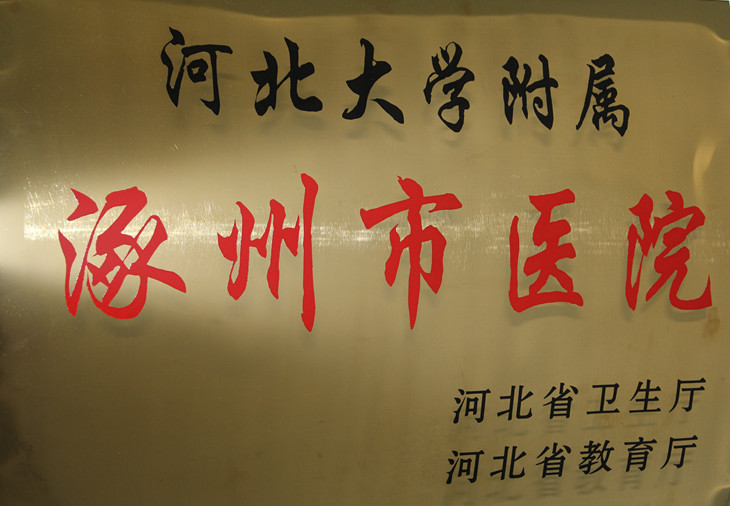 河北大学附属
涿州市医院
河北省卫生厅
河北省教育厅